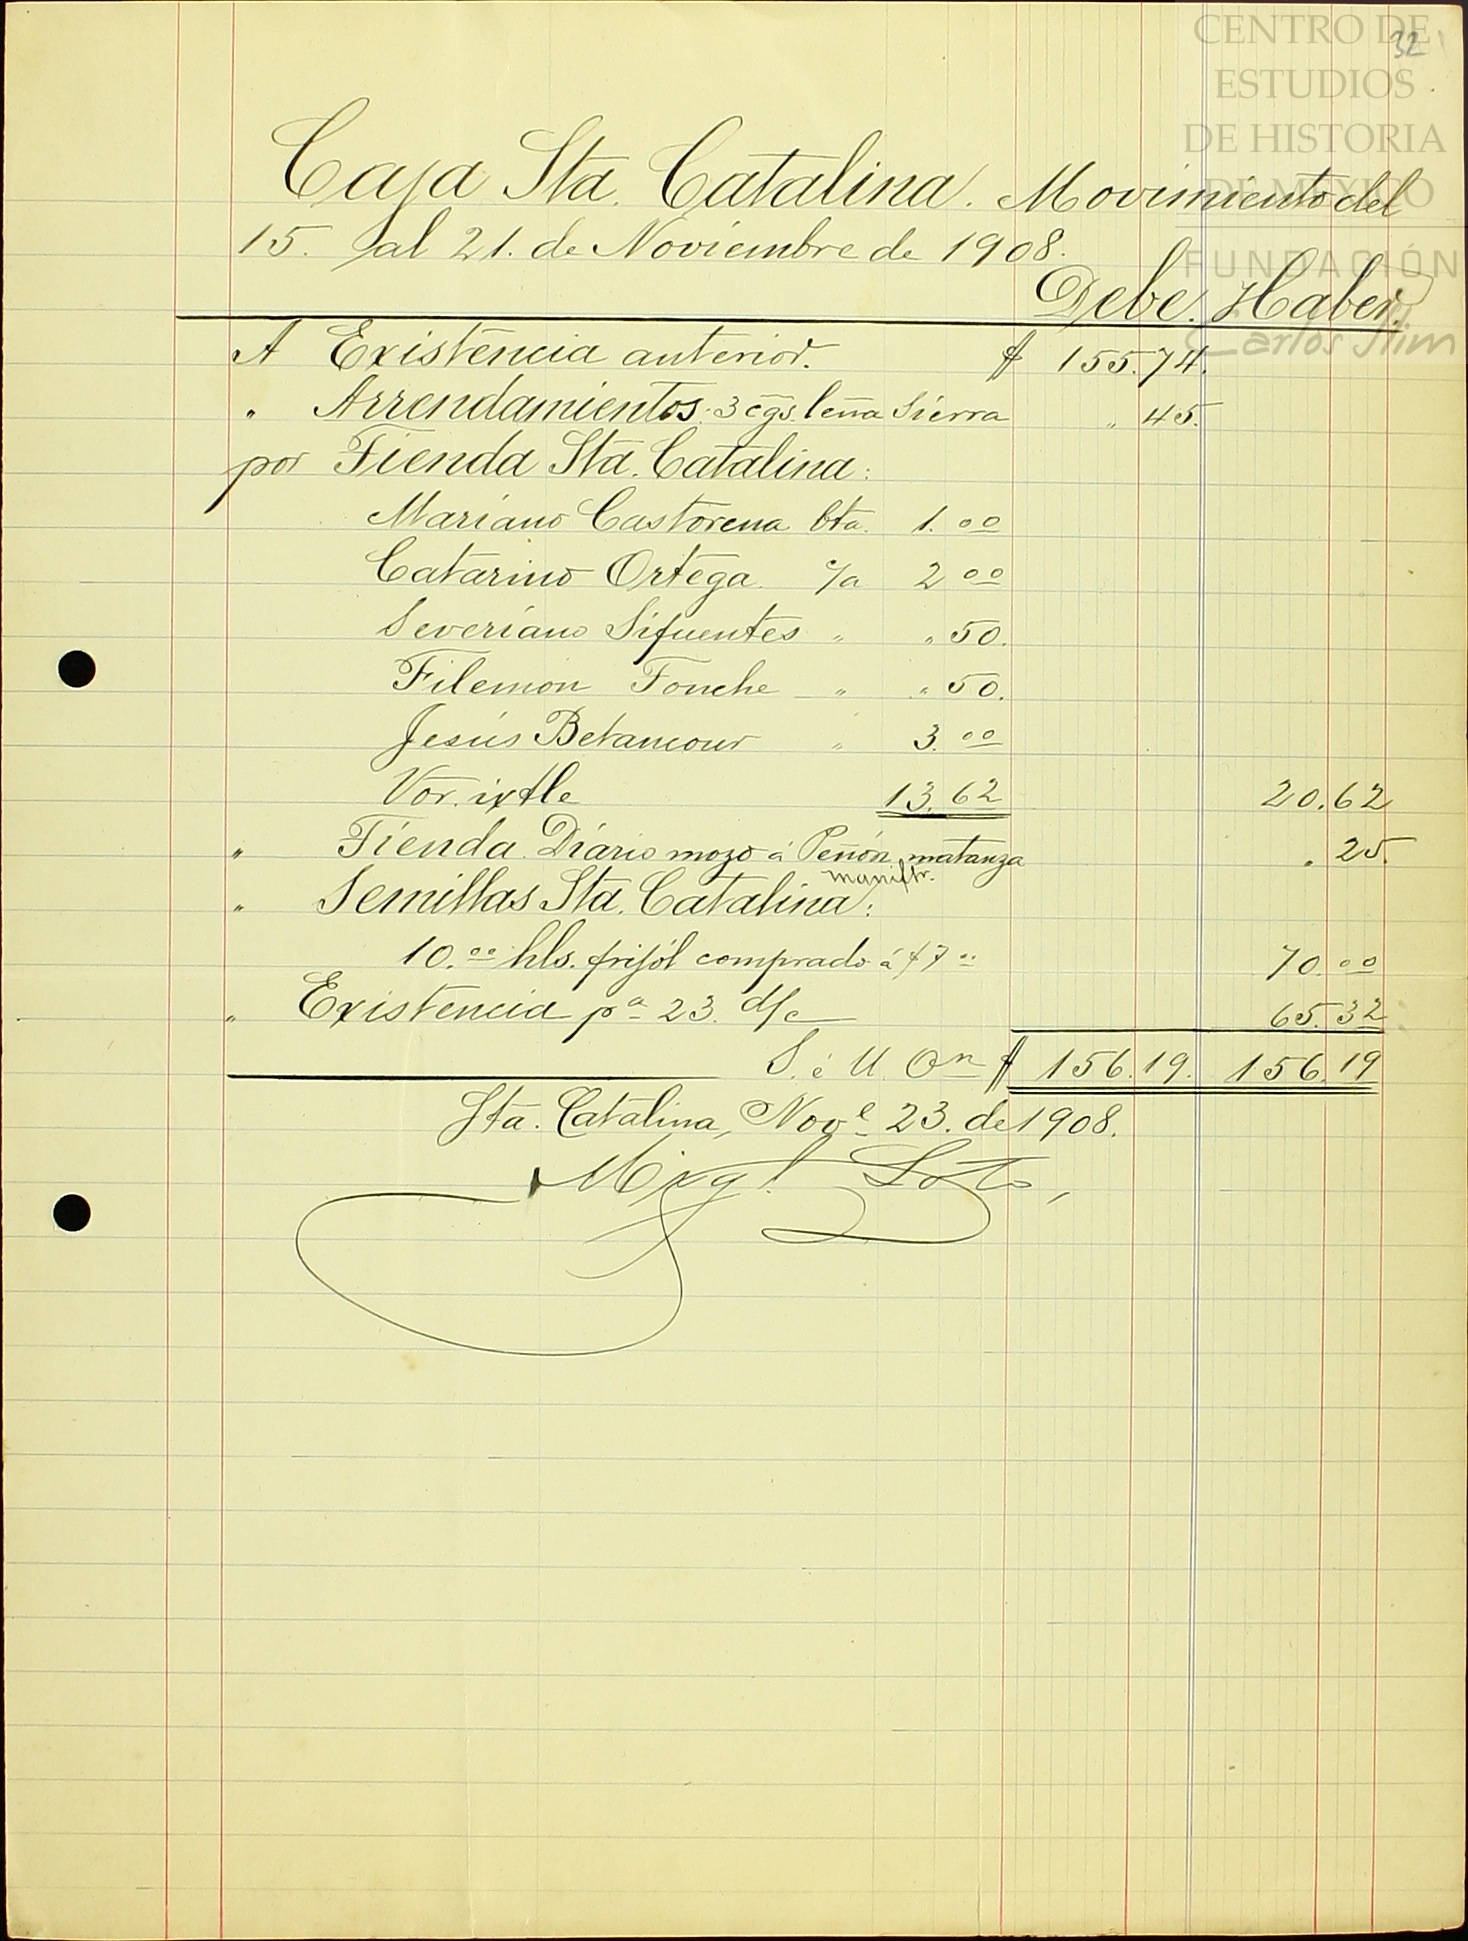 CENTRO DE
ESTUDIOS
DE HISTORIA
DE MÉXICO
FUNDACIÓN
Carlos Slim
32
Caja Sta. Catalina. Movimiento del
15. al 21. de Noviembre de 1908.
Debe. Haber.
A Existencia anterior. $ 155.74.
" Arrendamientos. 3 cgs. leña Sierra " 45.
por Tienda Sta. Catalina:
Mariano Castorena bta. 1.00
Catarino Ortega c/a 2 00
Severiano Sifuentes " " 50.
Filemón Fonche " " 50.
Jesús Betancour " 3.00
Vor. ixtle 13.62 20.62
" Tienda Diário mozo á Peñón matanza . 25.
" Semillas Sta. Catalina:
10.00 hls. frijól comprado á $7 00 70.00
" Existencia pa 23. d/c 65.32
S. é U. On $ 156.19. 156.19
Sta. Catalina, Nove 23. de 1908.
Migl. Soto,